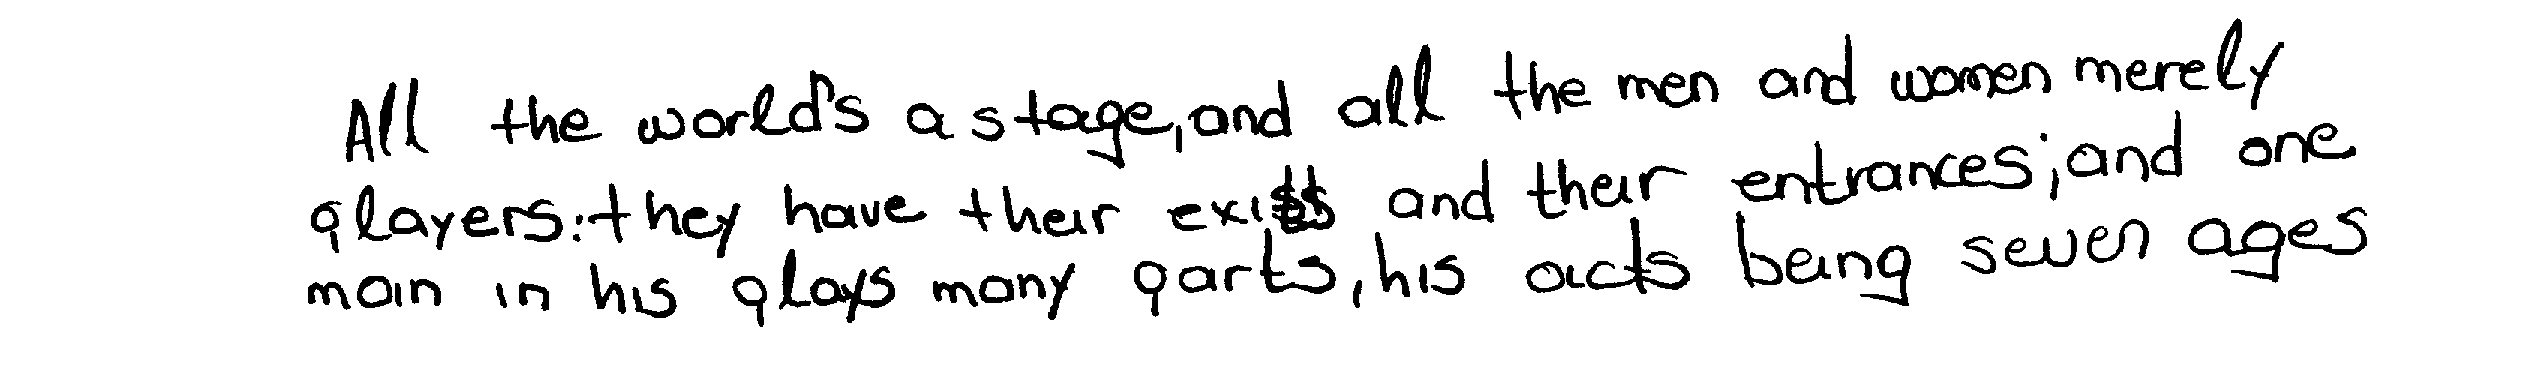 All the world's a stage, and all the men and women merely
players: they have their exits and their entrances; and one
man in his plays many parts, his acts being seven ages